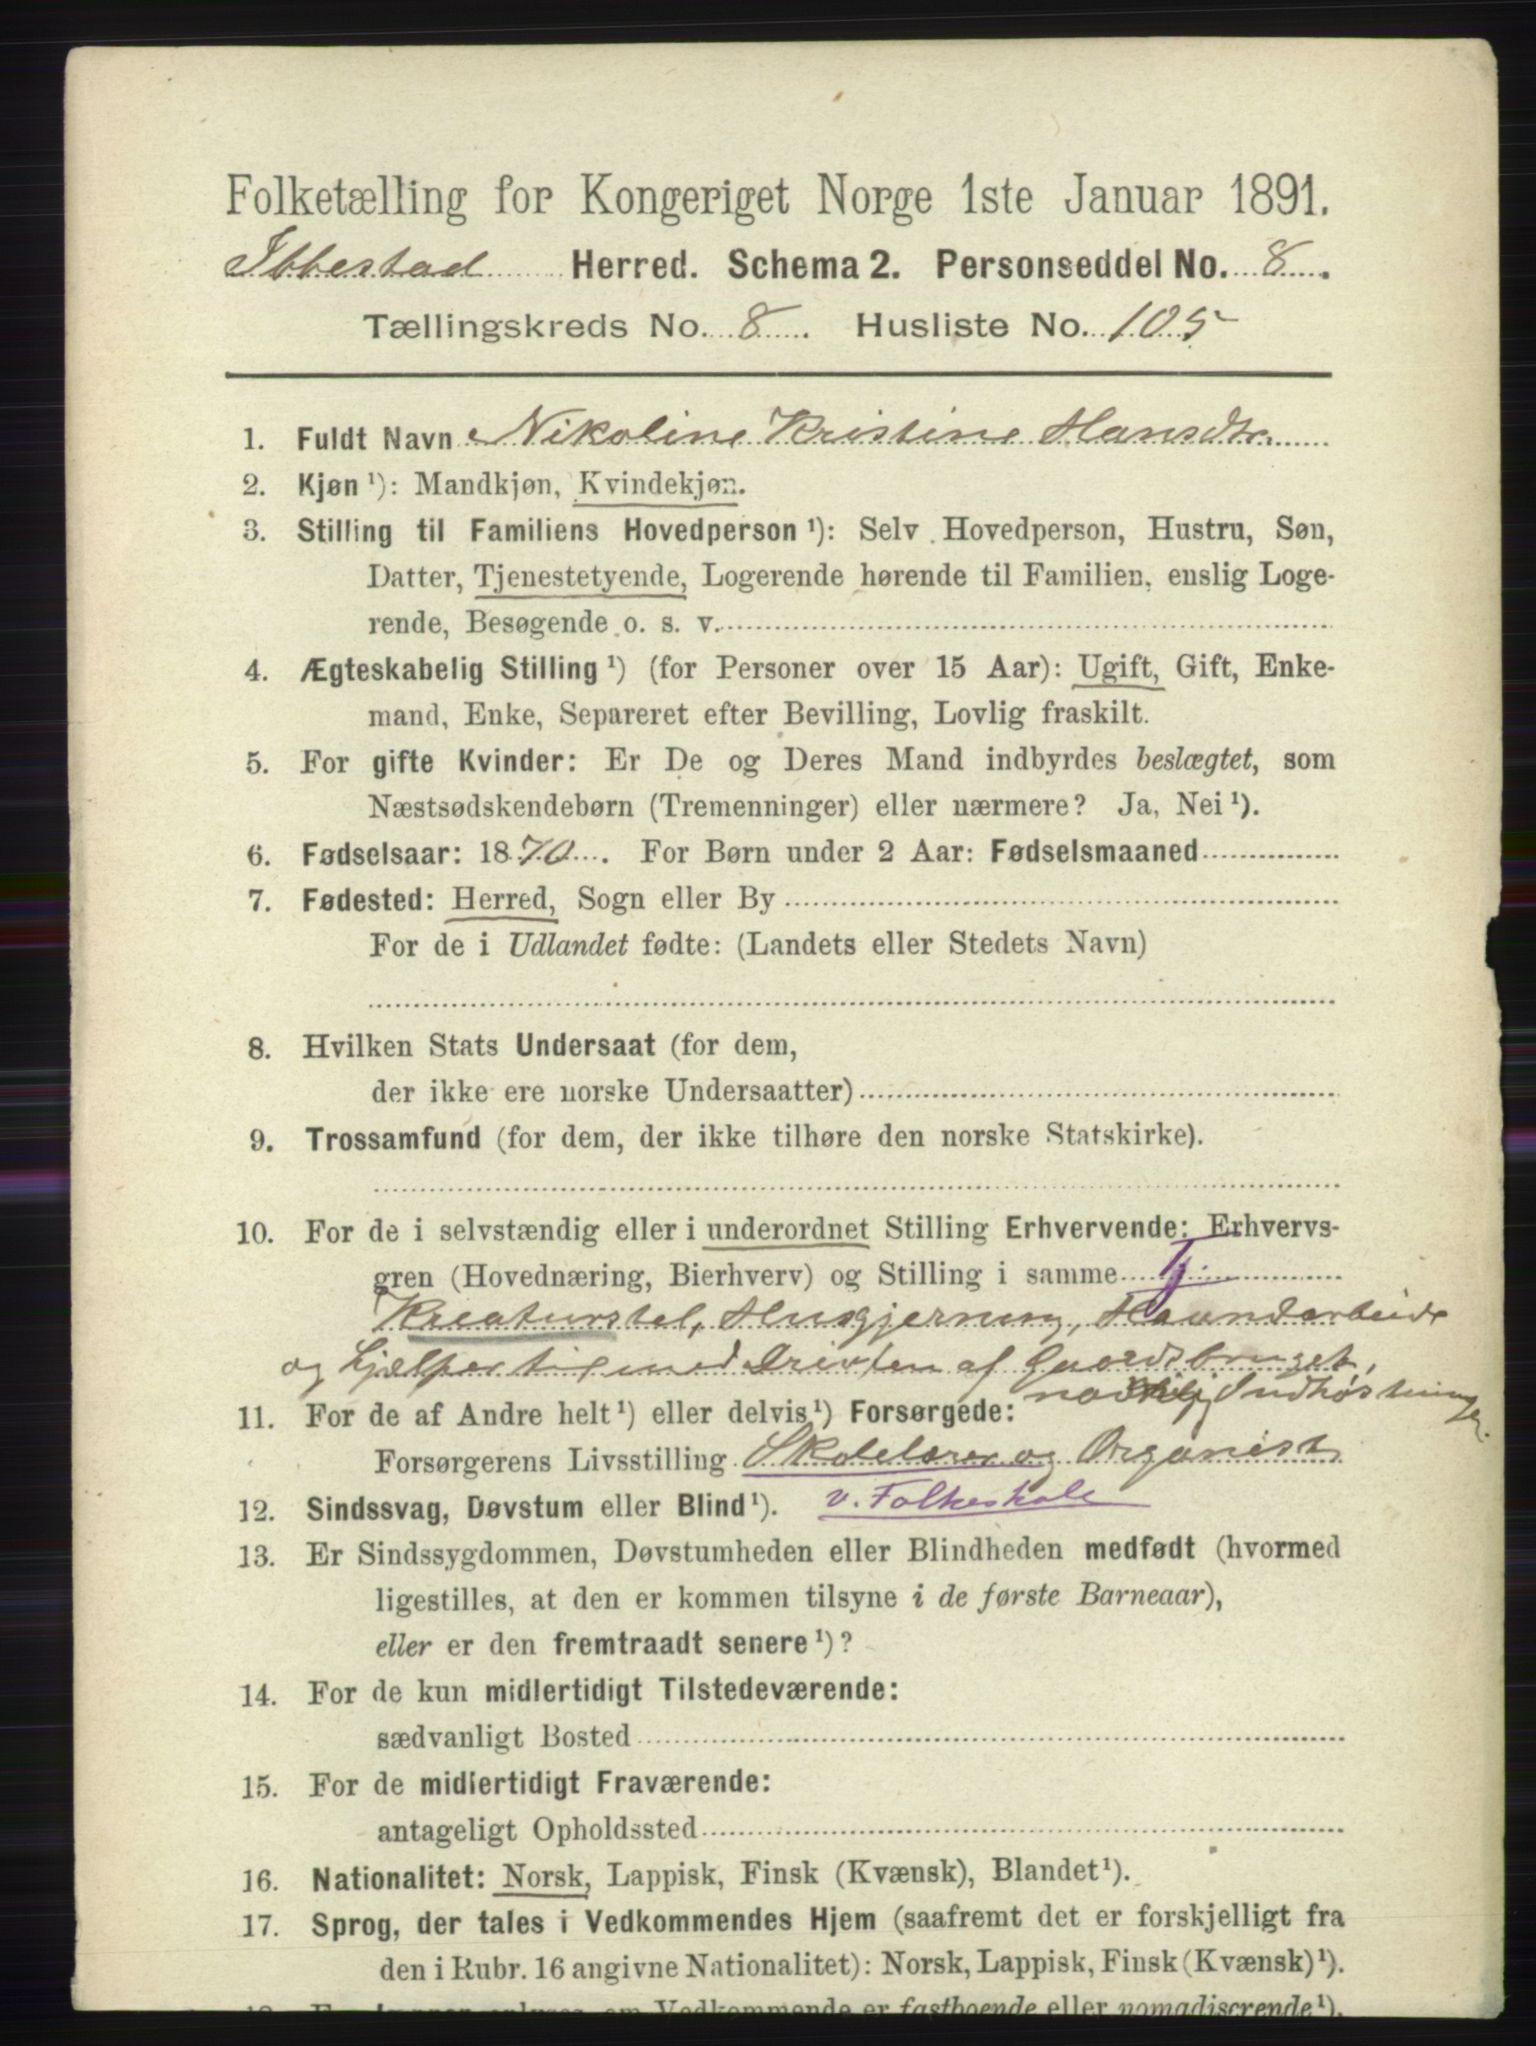 Folketælling for Kongeriget Norge 1ste Januar 1891.
Ibbestad Herred. Schema 2. Personseddel No. 8.
Tællingskreds No. 8. Husliste No. 105
1. Fuldt Navn Nikoline Kristine Hansdtr.
2. Kjøn ¹): Mandkjøn, Kvindekjøn.
3. Stilling til Familiens Hovedperson ¹): Selv Hovedperson, Hustru, Søn,
Datter, Tjenestetyende, Logerende hørende til Familien, enslig Loge-
rende, Besøgende o. s. v.
4. Ægteskabelig Stilling ¹) (for Personer over 15 Aar): Ugift, Gift, Enke-
mand, Enke, Separeret efter Bevilling, Lovlig fraskilt.
5. For gifte Kvinder: Er De og Deres Mand indbyrdes beslægtet, som
Næstsødskendebørn (Tremenninger) eller nærmere? Ja, Nei ¹).
6. Fødselsaar: 1870. For Børn under 2 Aar: Fødselsmaaned
7. Fødested: Herred, Sogn eller By
For de i Udlandet fødte: (Landets eller Stedets Navn)
8. Hvilken Stats Undersaat (for dem,
der ikke ere norske Undersaatter)
9. Trossamfund (for dem, der ikke tilhøre den norske Statskirke).
10. For de i selvstændig eller i underordnet Stilling Erhvervende: Erhvervs-
gren (Hovednæring, Bierhverv) og Stilling i samme Tj.
Kreaturstel, Husgjerning, Haandarbeide
og hjælper til med Driften af Gaardsbruget,
Indhøstning
11. For de af Andre helt ¹) eller delvis ¹) Forsørgede:
Forsørgerens Livsstilling Skolelærer og Organist
v. Folkeskole
12. Sindssvag, Døvstum eller Blind ¹).
13. Er Sindssygdommen, Døvstumheden eller Blindheden medfødt (hvormed
ligestilles, at den er kommen tilsyne i de første Barneaar),
eller er den fremtraadt senere ¹)?
14. For de kun midlertidigt Tilstedeværende:
sædvanligt Bosted
15. For de midlertidigt Fraværende:
antageligt Opholdssted
16. Nationalitet: Norsk, Lappisk, Finsk (Kvænsk), Blandet ¹).
17. Sprog, der tales i Vedkommendes Hjem (saafremt det er forskjelligt fra
den i Rubr. 16 angivne Nationalitet): Norsk, Lappisk, Finsk (Kvænsk) ¹).
Vedkommende er fastboende eller nomadiserende ¹).